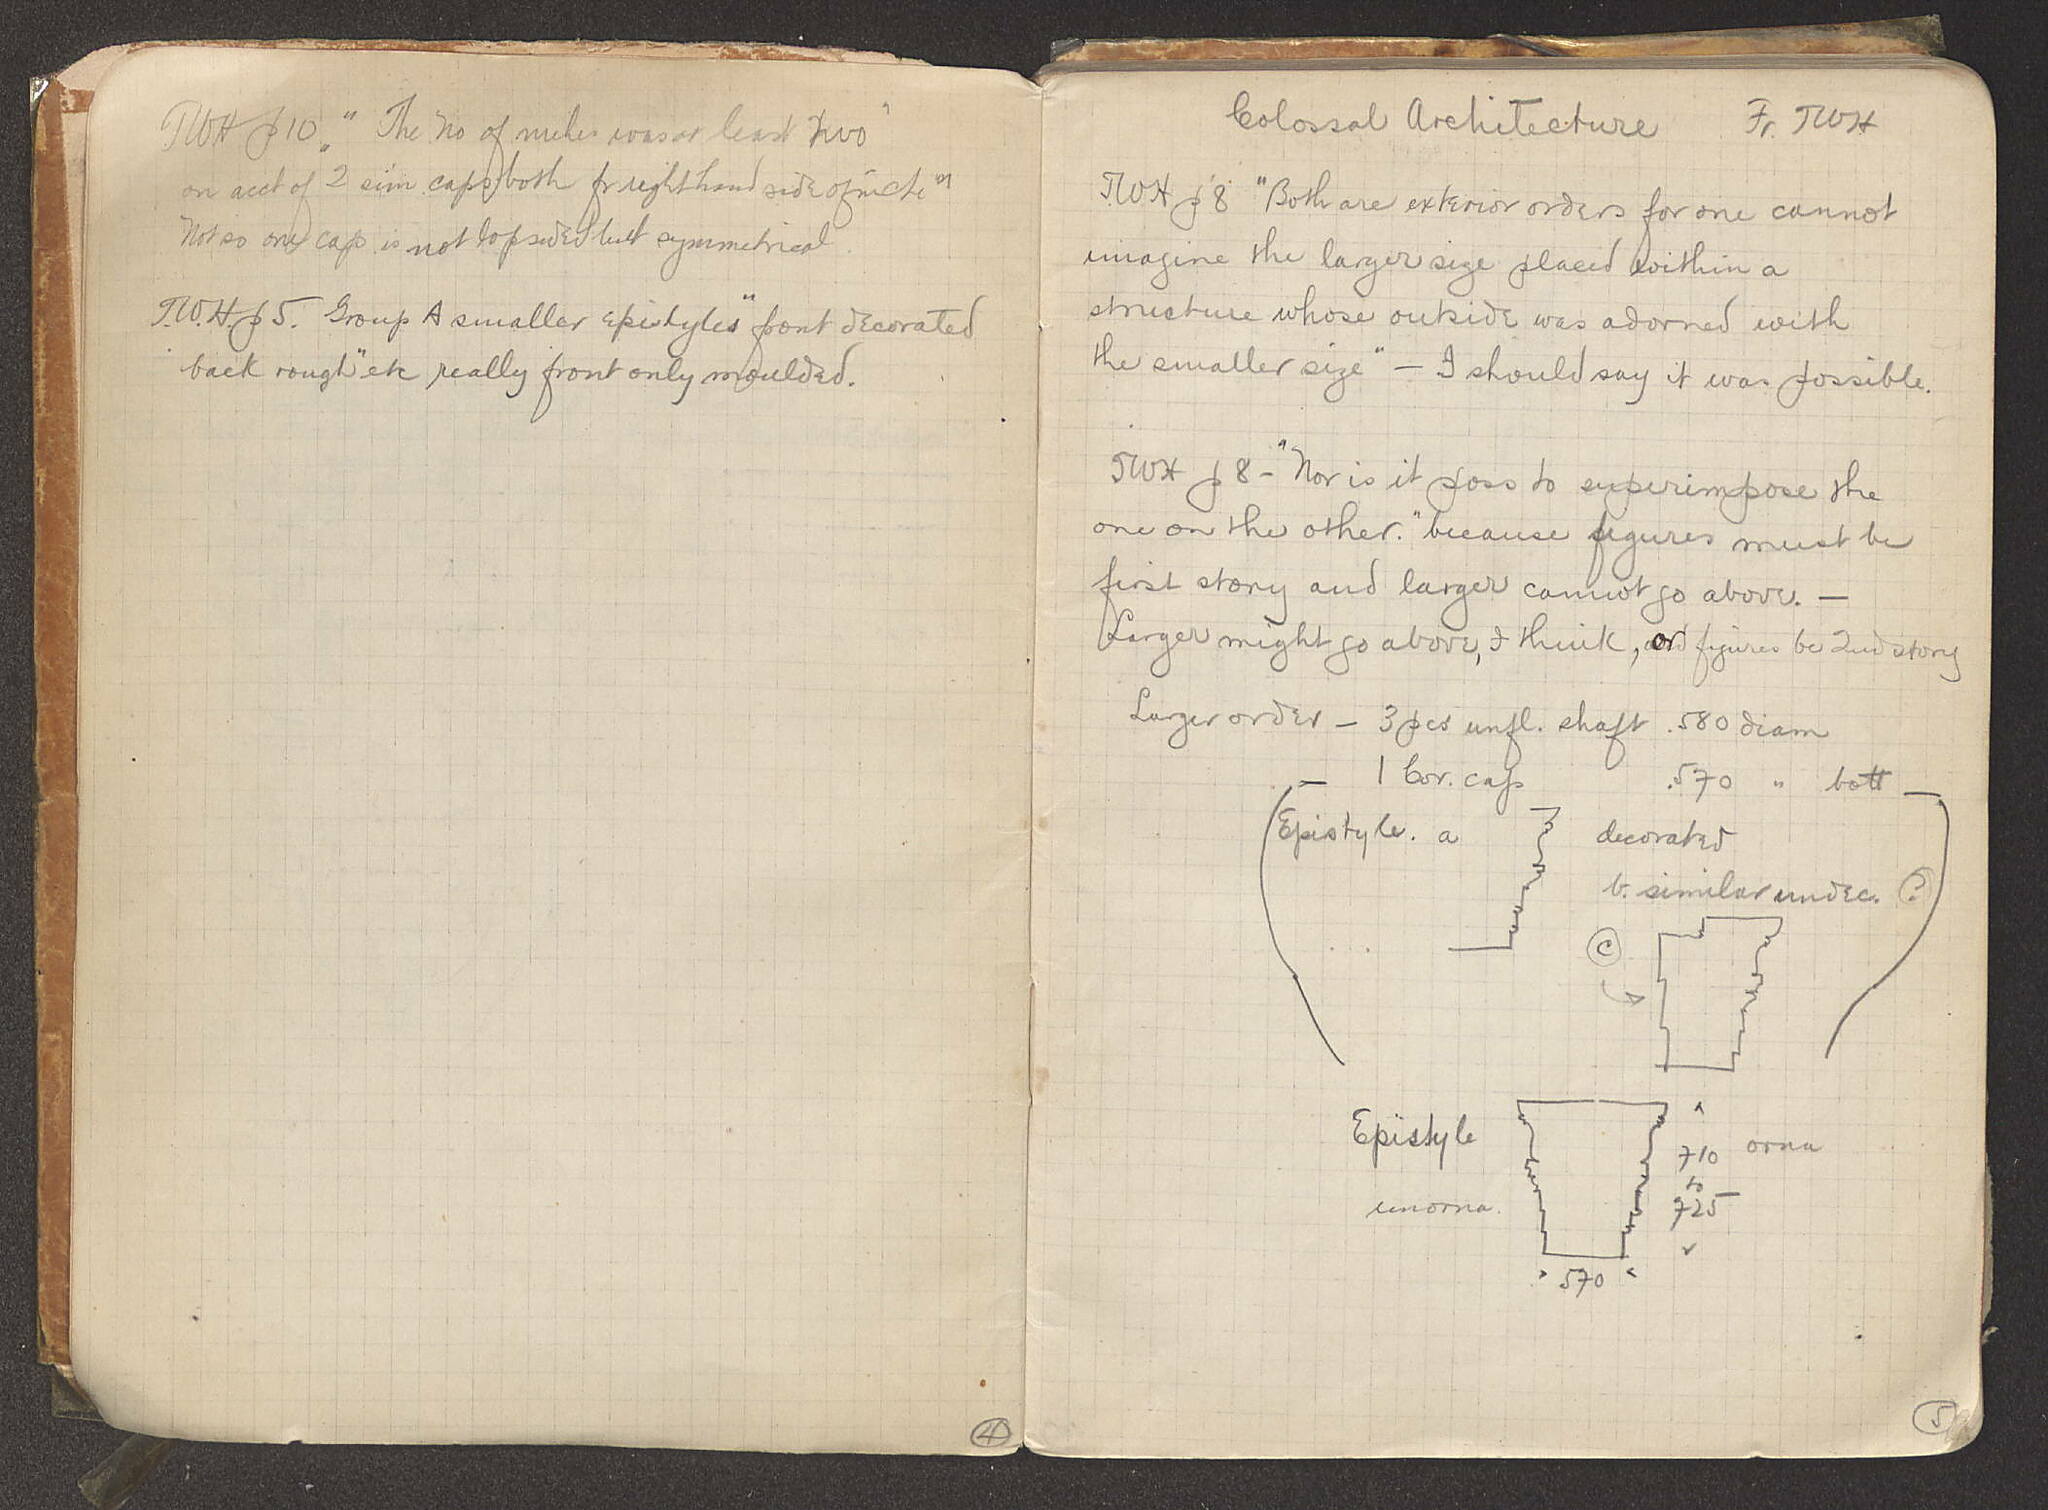 TWH p10. "The No of niches was at least two"
on acct of 2 sim. caps, both fr right hand side of niche"
Not so one cap is not lopsided but symmetrical
T.W.H. p5. Group A smaller epistyles "front decorated
back rough" etc really front only moulded.
4
Colossal Architecture Fr. TWH
TWH p8 "Both are exterior orders for one cannot
imagine the larger size placed within a
structure whose outside was adorned with
the smaller size" – I should say it was possible.
TWH p8 – "Nor is it poss to superimpose the
one on the other." because figures must be
first story and larger cannot go above. –
Larger might go above, I think, or figures be 2nd story
Larger order – 3 pcs unfl. shaft .580 diam
– 1 Cor. cap .570 " bott –
Epistyle. a decorated
b. similar undec. ?
c
Epistyle 710 orna
to
unorna. 725
570
5